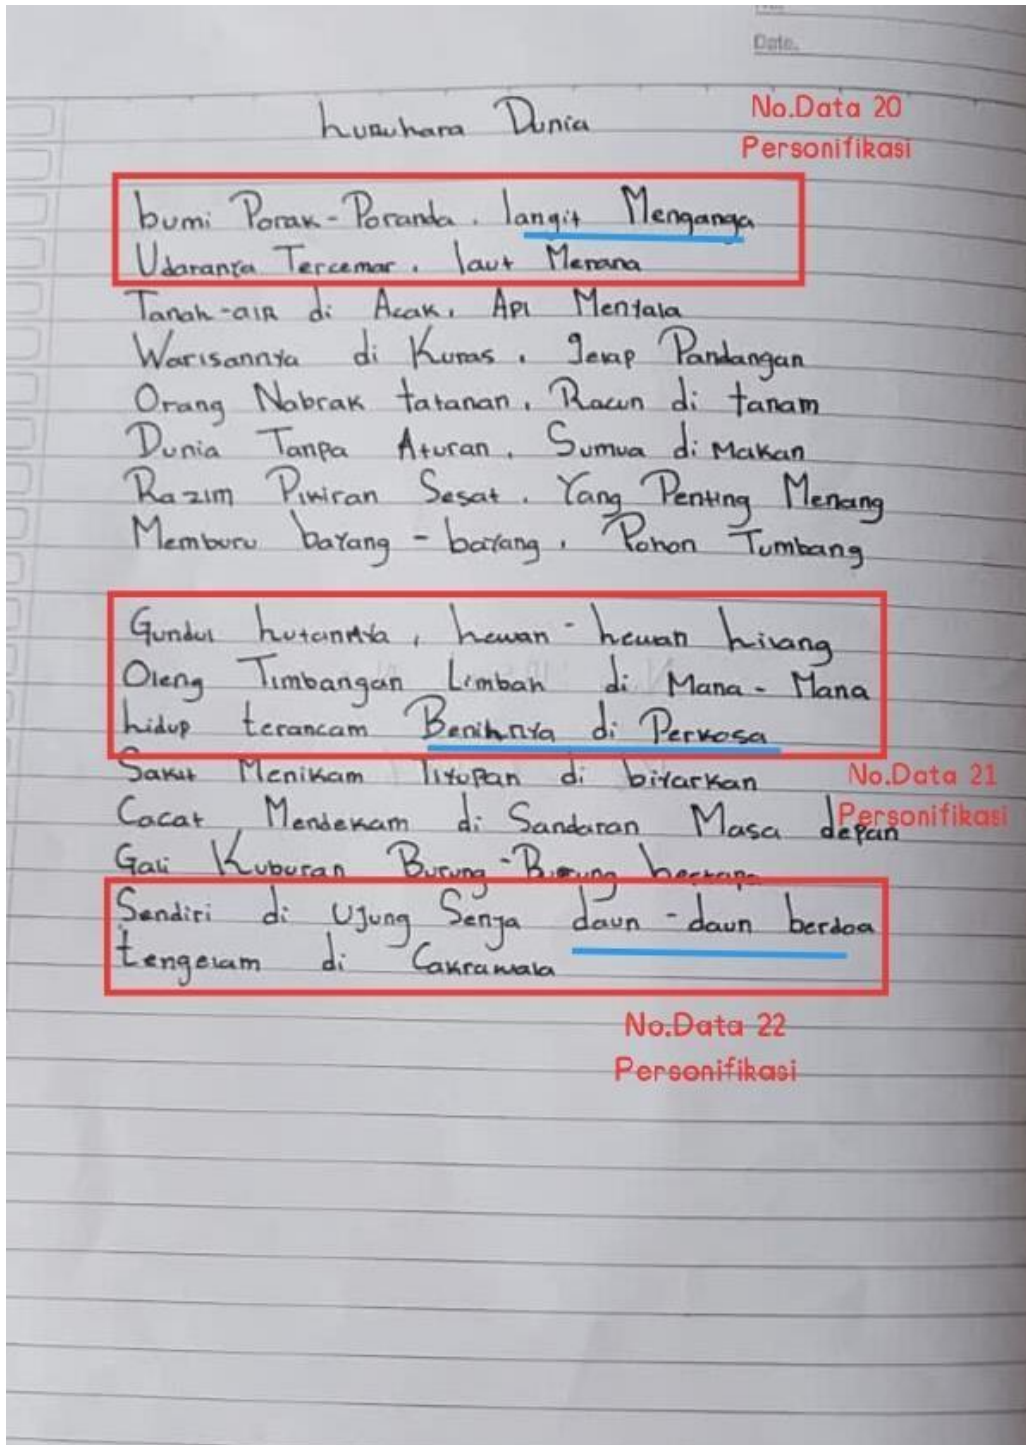 Date.
huruhara Dunia
No.Data 20
Personifikasi
bumi Porak-Poranda. langit Menganga
Udaranya Tercemar. laut Merana
Tanah-aiR di Acak. Api Menyala
Warisannya di Kuras. gelap Pandangan
Orang Nabrak tatanan. Racun di tanam
Dunia Tanpa Aturan. Sumua di Makan
Razim Pikiran Sesat. Yang Penting Menang
Memburu bayang-bayang. Pohon Tumbang
Gundul hutannya, hewan-hewan hilang
Oleng Timbangan Limbah di Mana-Mana
hidup terancam Benihnya di Perkosa
Sakit Menikam Titupan di biyarkan
No.Data 21
Cacat Mendekam di Sandaran Masa depan
Personifikasi
Gali Kuburan Burung-Burung
Sendiri di Ujung Senja daun-daun berdoa
tengelam di Cakrawala
No.Data 22
Personifikasi